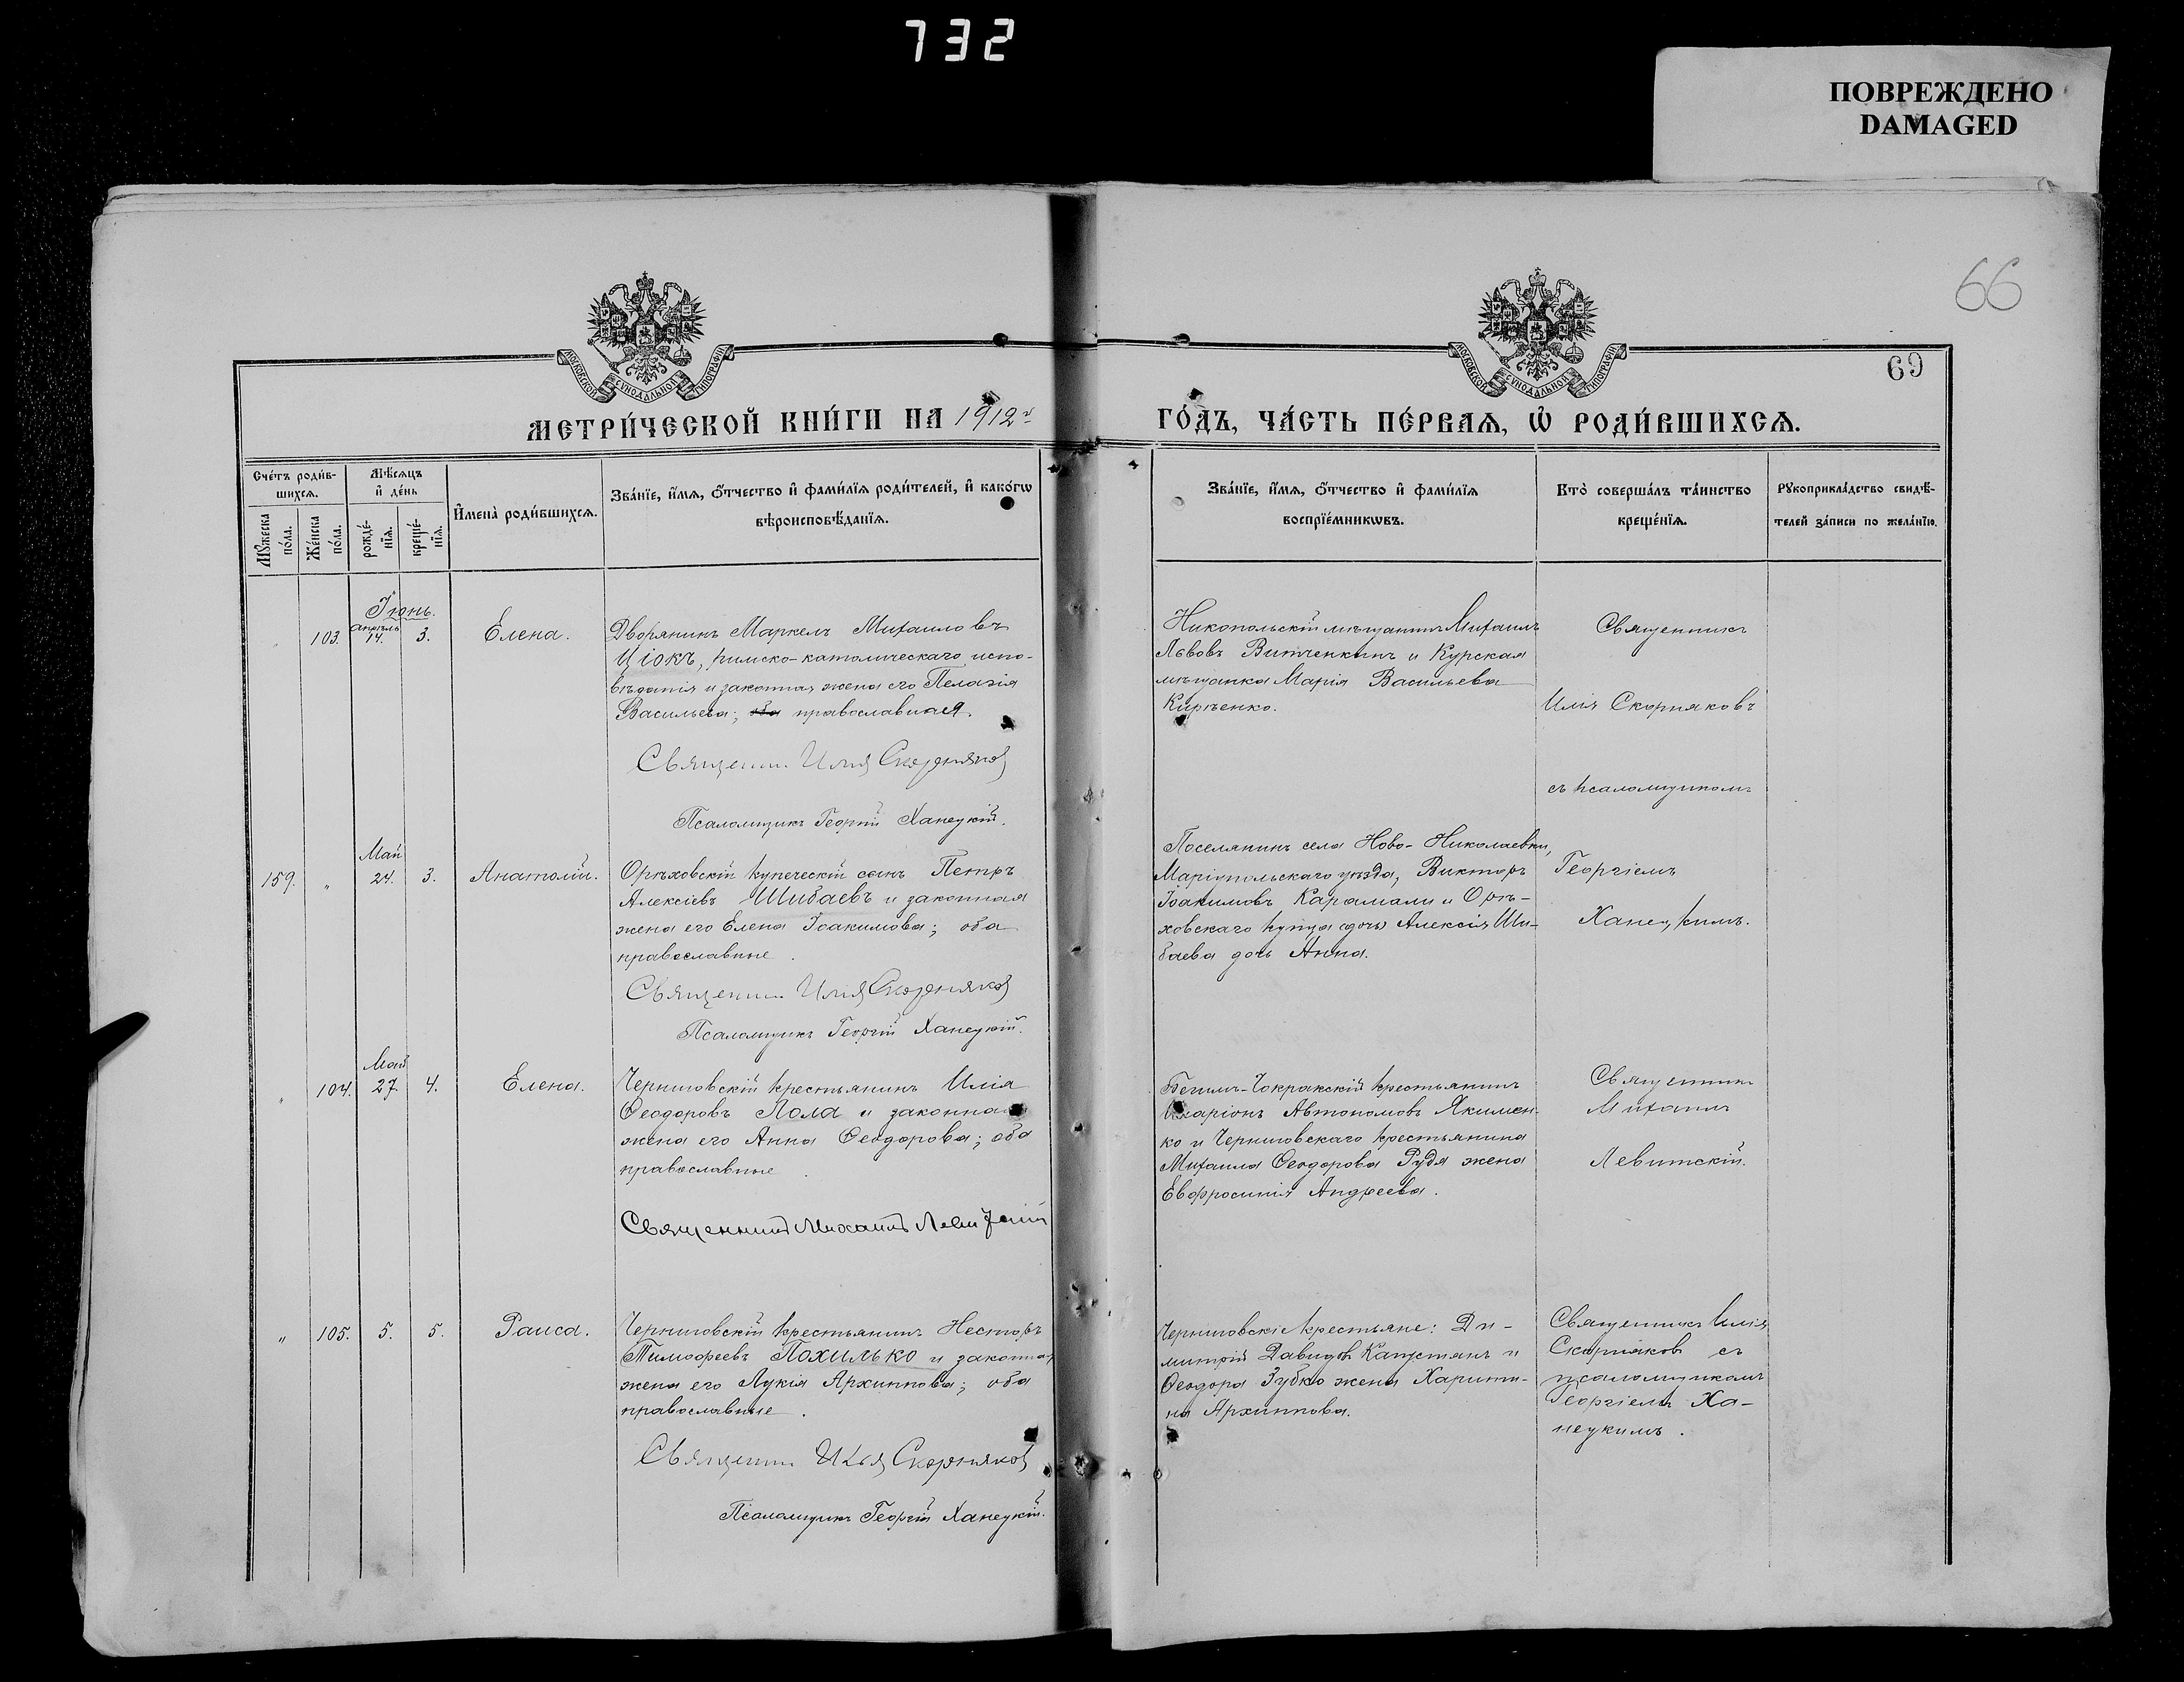 732
ПОВРЕЖДЕНО
DAMAGED
66
69
МОСКОВСКОЙ СѴНОДАЛЬНОЙ ТИПОГРАФІИ
МОСКОВСКОЙ СѴНОДАЛЬНОЙ ТИПОГРАФІИ
МЕТРИ́ЧЕСКОЙ КНИ́ГИ НА 1912 г
ГО́ДЪ, ЧА́СТЬ ПЕ́РВАѦ, Ѡ҆ РОДИ́ВШИХСѦ.
Сче́тъ роди́в-
шихсѧ.
Мѣ́сѧцъ
и҆ де́нь
Мꙋ́жеска по́ла.
Же́нска по́ла.
рожде́-
нїѧ.
креще́-
нїѧ.
И҆мена̀ роди́вшихсѧ.
Зва́нїе, и҆́мѧ, ѻ҆́тчество и҆ фами́лїѧ роди́телей, и҆ како́гѡ
вѣроисповѣ́данїѧ.
Зва́нїе, и҆́мѧ, ѻ҆́тчество и҆ фами́лїѧ
воспрїе́мникѡвъ.
Кто̀ соверша́лъ та́инство
креще́нїѧ.
Рꙋкоприкла́дство свидѣ́-
телей за́писи по жела́нїю.
Іюнь.
апрѣль
103. 14. 3. Елена.
Дворянинъ Маркелъ Михаиловъ
Ціокъ, римско-католическаго испо-
вѣданія и законная жена его Пелагія
Васильева; оба православная.
Священник Илія Скорняков
Псаломщикъ Георгій Ханецкій.
Никопольскій мѣщанинъ Михаилъ
Львовъ Витченкинъ и Курская
мѣщанка Марія Васильева
Кирѣенко.
Священникъ
Илія Скорняковъ
съ псаломщикомъ
Георгіемъ
Ханецкимъ.
Май
159. „ 24. 3. Анатолій.
Орѣховскій купеческій сынъ Петръ
Алексіевъ Шибаевъ и законная
жена его Елена Іоакимова; оба
православные.
Священник Илія Скорняков
Псаломщикъ Георгій Ханецкій.
Поселянинъ села Ново-Николаевки,
Маріупольскаго уѣзда, Викторъ
Іоакимовъ Карамали и Орѣ-
ховскаго купца Алексія Ши-
баева дочь Анна.
Май
„ 104. 27. 4. Елена.
Черниговскій крестьянинъ Илія
Ѳеодоровъ Лола и законная
жена его Анна Ѳеодорова; оба
православные.
Священникъ Михаилъ Левитскій
Бегимъ-Чокракскій крестьянинъ
Иларіонъ Автономовъ Якимен-
ко и Черниговскаго крестьянина
Михаила Ѳеодорова Рудя жена
Евфросинія Андреева.
Священникъ
Михаилъ
Левитскій.
„ 105. 5. 5. Раиса.
Черниговскій крестьянинъ Несторъ
Тимоѳеевъ Похилько и законная
жена его Лукія Архиппова; оба
православные.
Священник Илья Скорняков
Псаломщикъ Георгій Ханецкій.
Черниговскіе крестьяне: Ди-
митрій Давидов Капустянъ и
Ѳеодора Зубко жена Харити-
на Архиппова.
Священникъ Илія
Скорняков съ
псаломщикомъ
Георгіемъ Ха-
нецкимъ.